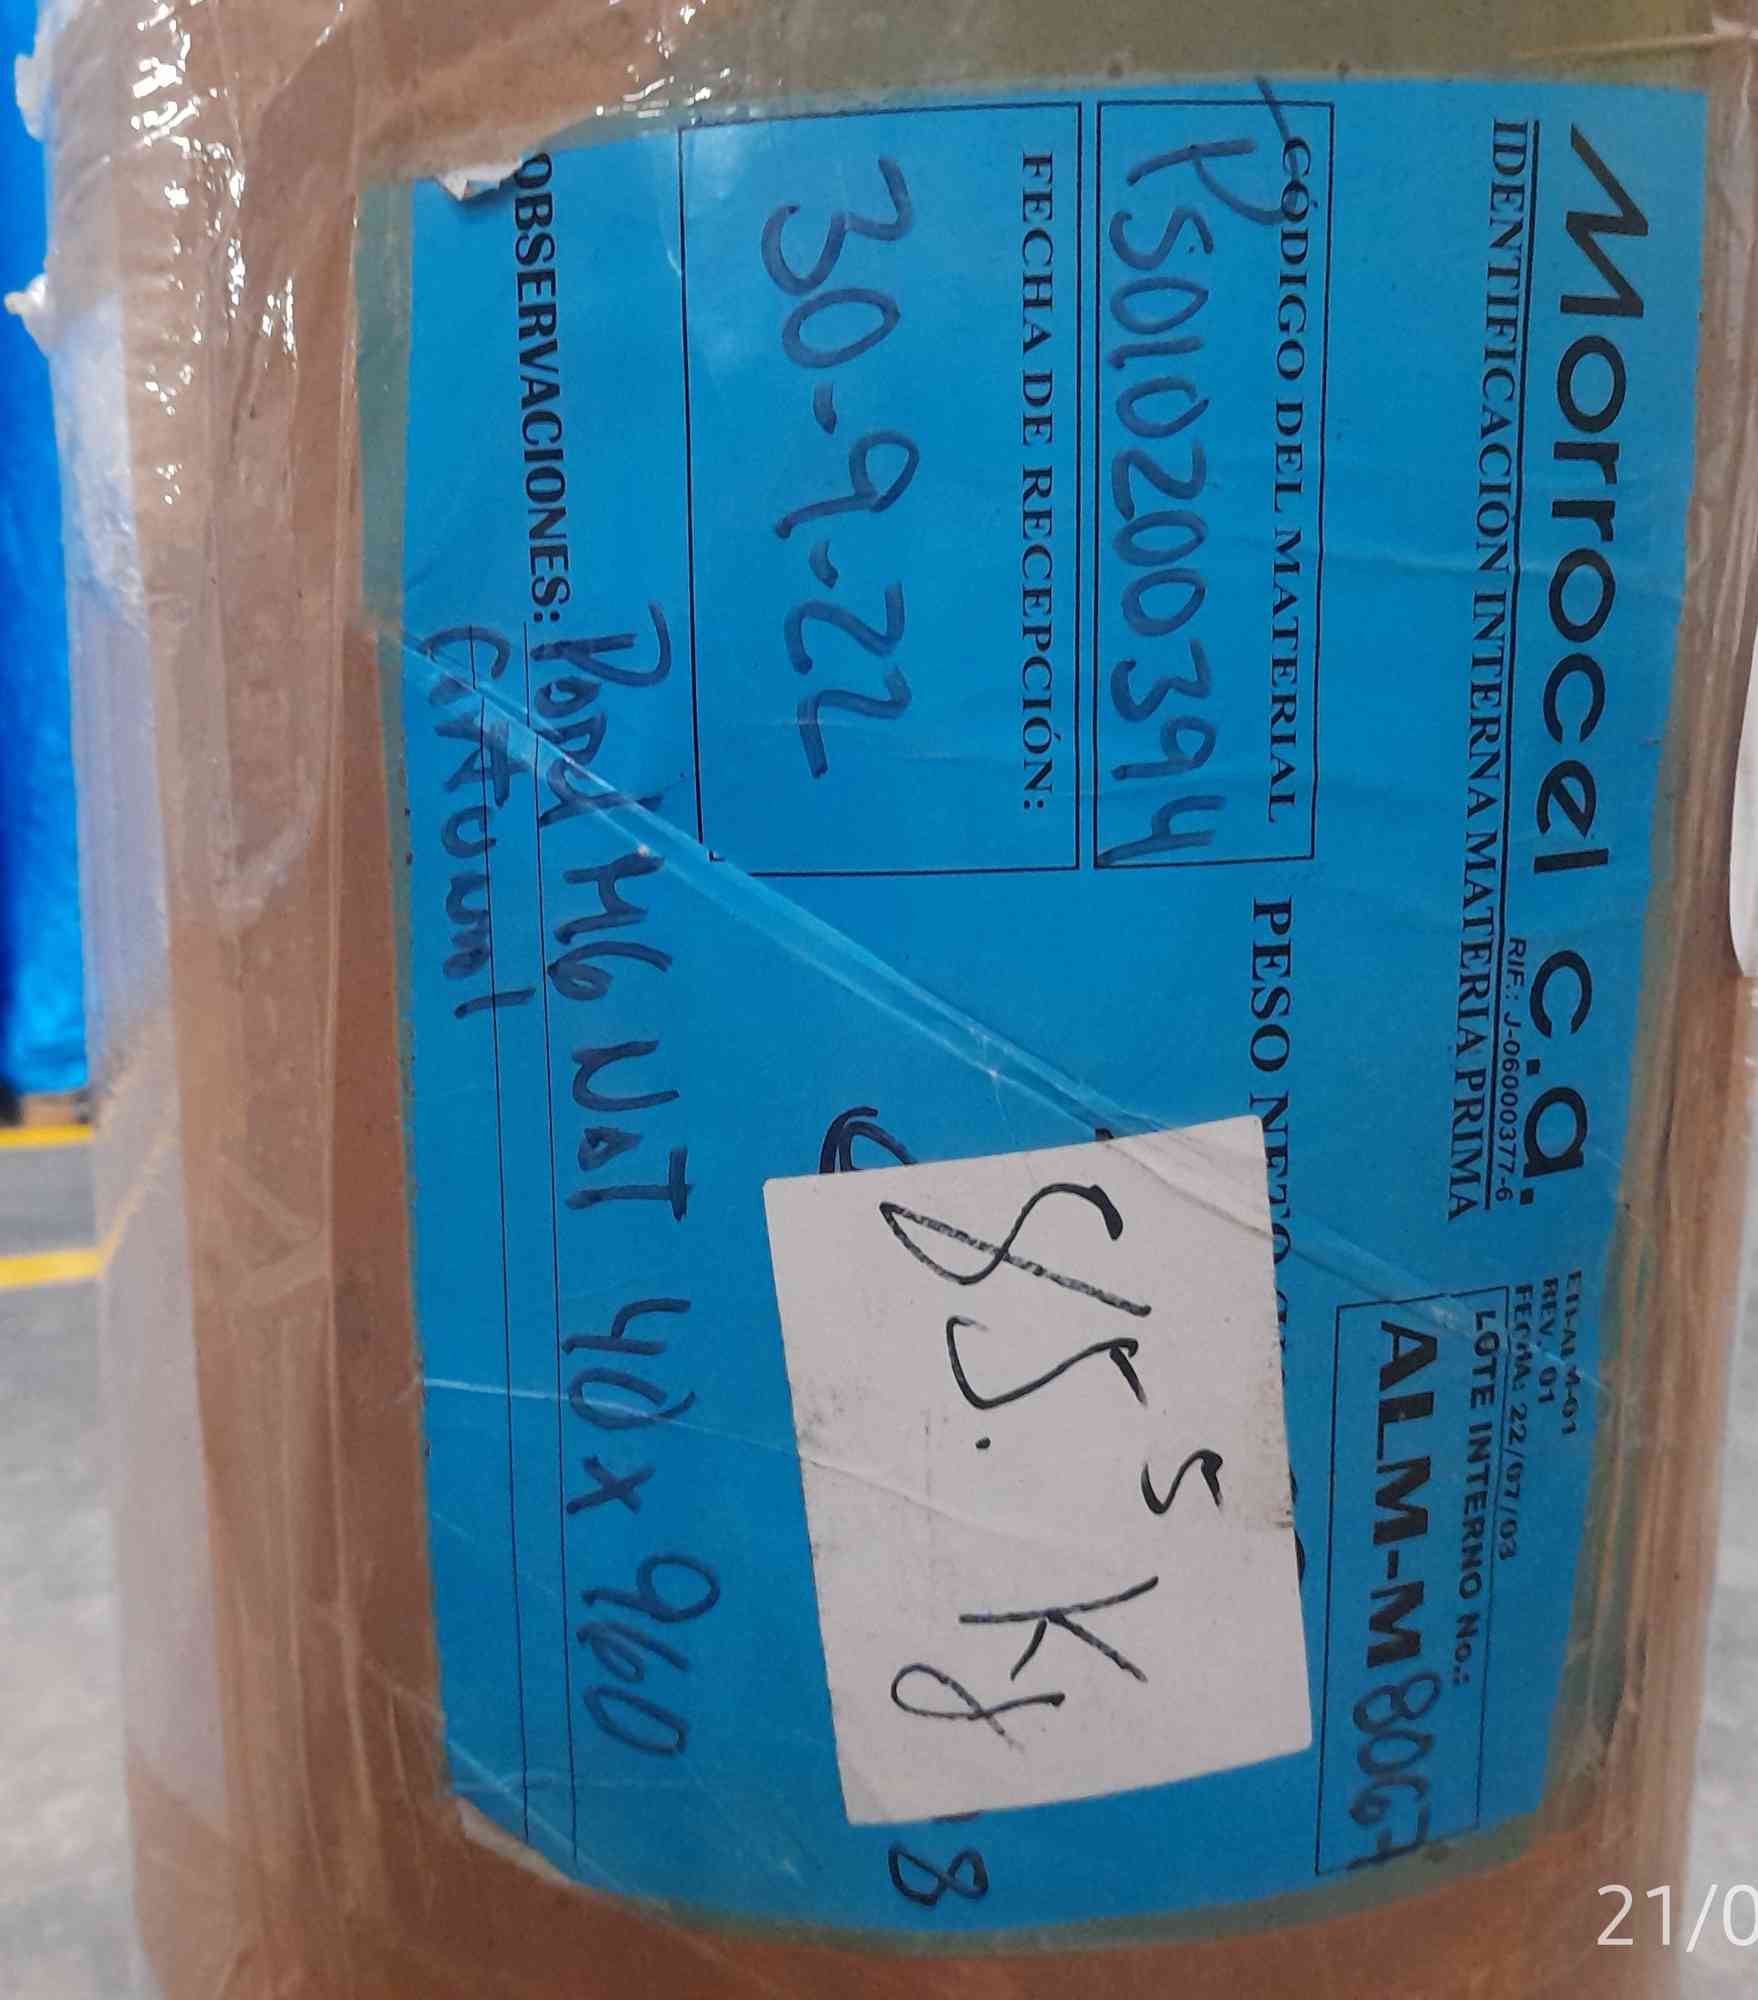 Morrocel c.a.
RIF.: J-06000377-6
IDENTIFICACIÓN INTERNA MATERIA PRIMA
REV. 01
FECHA: 22/07/03
LOTE INTERNO No.:
ALM-M 8067
CÓDIGO DEL MATERIAL
PS01020039 4
PESO NETO
FECHA DE RECEPCIÓN:
30-9-22
85.5 Kg
8
OBSERVACIONES: Popy M6 NAT 40 x 960
21/0